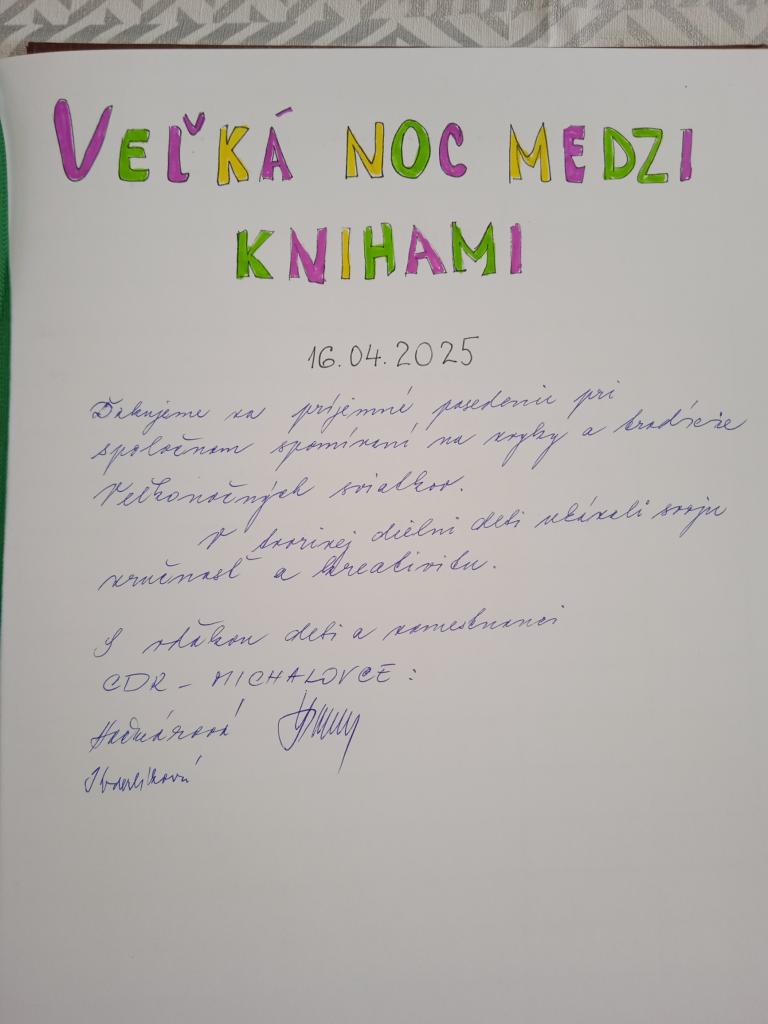 VEĽKÁ NOC MEDZI
KNIHAMI
16.04.2025
Ďakujeme za príjemné posedenie pri
spoločnom spomínaní na zvyky a tradície
Veľkonočných sviatkov.
V tvorivej dielni deti ukázali svoju
zručnosť a kreativitu.
S vďakou deti a zamestnanci
CDR - MICHALOVCE: